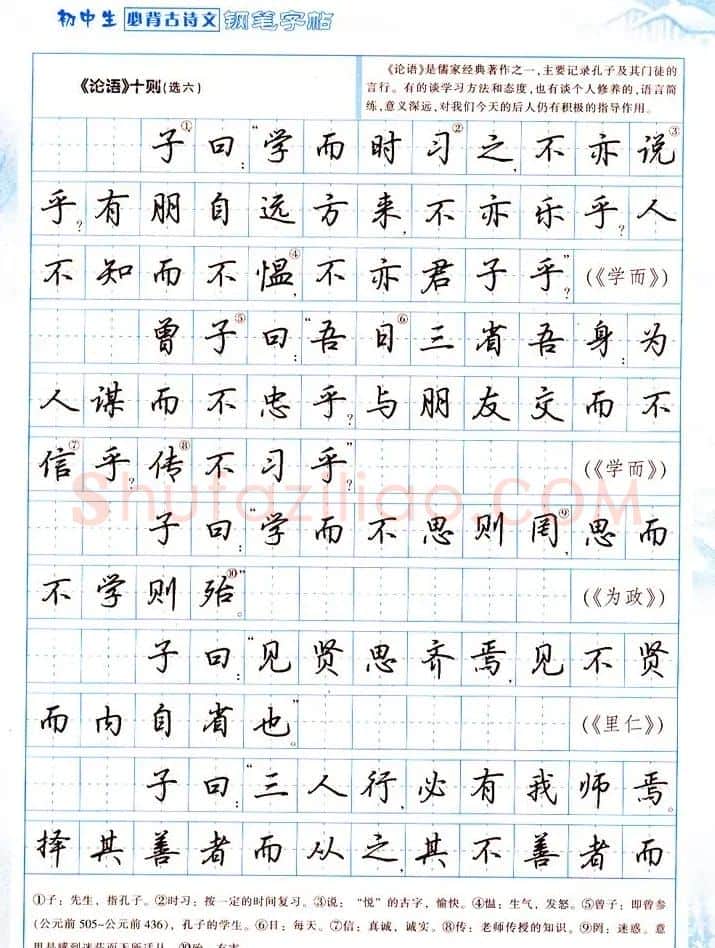 初中生必背古诗文钢笔字帖
《论语》十则(选六)
《论语》是儒家经典著作之一,主要记录孔子及其门徒的
言行。有的谈学习方法和态度,也有谈个人修养的,语言简
练,意义深远,对我们今天的后人仍有积极的指导作用。
子①曰:“学而时习②之,不亦说③
乎?有朋自远方来,不亦乐乎?人
不知而不愠④,不亦君子乎?”(《学而》)
曾子⑤曰:“吾日⑥三省吾身:为
人谋而不忠乎?与朋友交而不
信⑦乎?传⑧不习乎?”(《学而》)
子曰:“学而不思则罔⑨,思而
不学则殆⑩。”(《为政》)
子曰:“见贤思齐焉,见不贤
而内自省也。”(《里仁》)
子曰:“三人行,必有我师焉。
择其善者而从之,其不善者而
shufaziliao.COM
①子:先生,指孔子。②时习:按一定的时间复习。③说:“悦”的古字,愉快。④愠:生气,发怒。⑤曾子:即曾参
(公元前505-公元前436),孔子的学生。⑥日:每天。⑦信:真诚,诚实。⑧传:老师传授的知识。⑨罔:迷惑。意